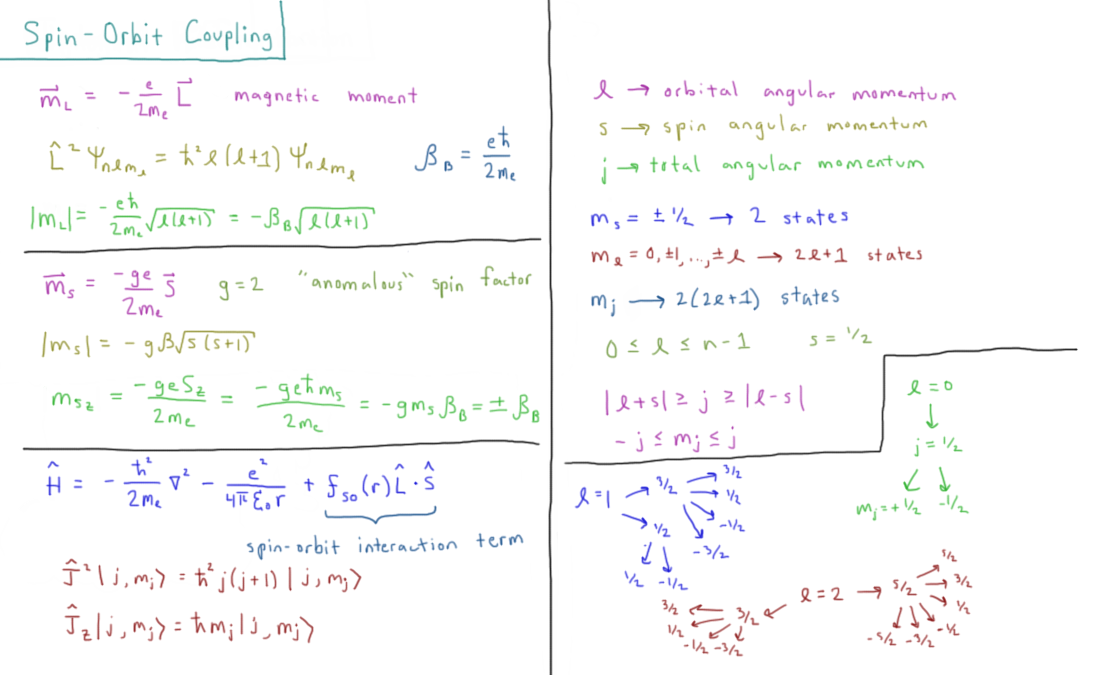 Spin-Orbit Coupling
m⃗_L = -e/2mₑ L⃗ magnetic moment
L̂² Ψ_nℓm_ℓ = ħ²ℓ(ℓ+1) Ψ_nℓm_ℓ β_B = eħ/2mₑ
|m_L| = -eħ/2mₑ √ℓ(ℓ+1) = -β_B √ℓ(ℓ+1)
m⃗_s = -ge/2mₑ S⃗ g=2 "anomalous" spin factor
|m_s| = -gβ√s(s+1)
m_sz = -geS_z/2mₑ = -geħm_s/2mₑ = -gm_s β_B = ± β_B
Ĥ = -ħ²/2mₑ ∇² - e²/4πξ₀r + f_so(r) L̂·Ŝ
spin-orbit interaction term
Ĵ²|j, m_j⟩ = ħ²j(j+1)|j, m_j⟩
Ĵ_z|j, m_j⟩ = ħm_j|j, m_j⟩
ℓ → orbital angular momentum
s → spin angular momentum
j → total angular momentum
m_s = ± 1/2 → 2 states
m_ℓ = 0, ±1, ..., ± ℓ → 2ℓ+1 states
m_j → 2(2ℓ+1) states
0 ≤ ℓ ≤ n-1 s = 1/2
|ℓ+s| ≥ j ≥ |ℓ-s|
-j ≤ m_j ≤ j
ℓ = 0
↓
j = 1/2
↙ ↓
m_j = +1/2 -1/2
ℓ=1 → 3/2 → 3/2
1/2
-1/2
-3/2
→ 1/2
1/2 -1/2
ℓ=2 → 5/2 → 5/2
3/2
1/2
-1/2
-5/2 -3/2
← 3/2
3/2
1/2
-1/2 -3/2